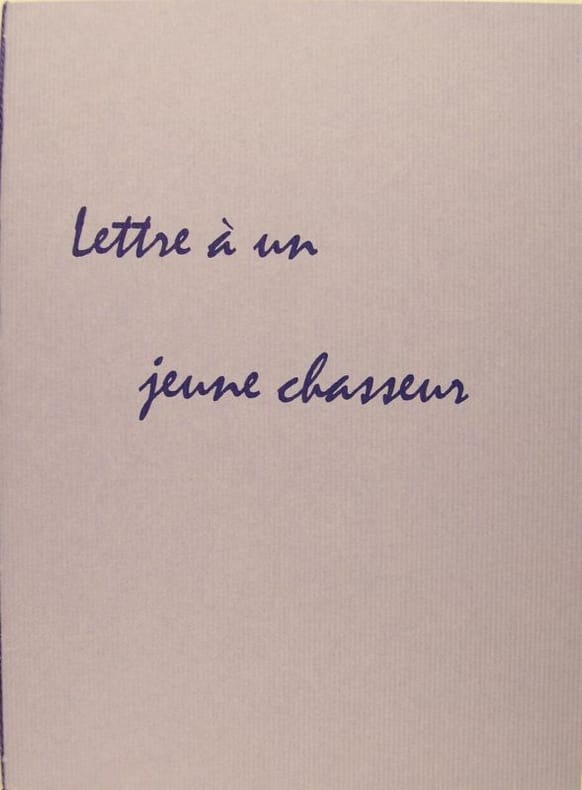 Lettre à un
jeune chasseur